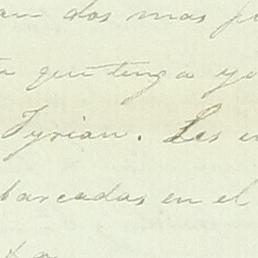 an dos mas
que tenga yo
Tyrian. Les
barcadas en el